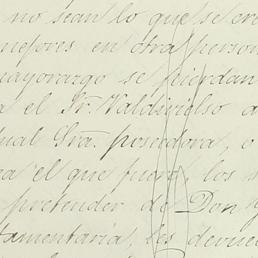 no sean lo que se cre
mejores en otra person
mayorazgo se pierdan
a el Sr. Valdivielso a
tual Sra. poseedora, o
a el que fuere, los
pretender de Don
tamentaria, les devuel